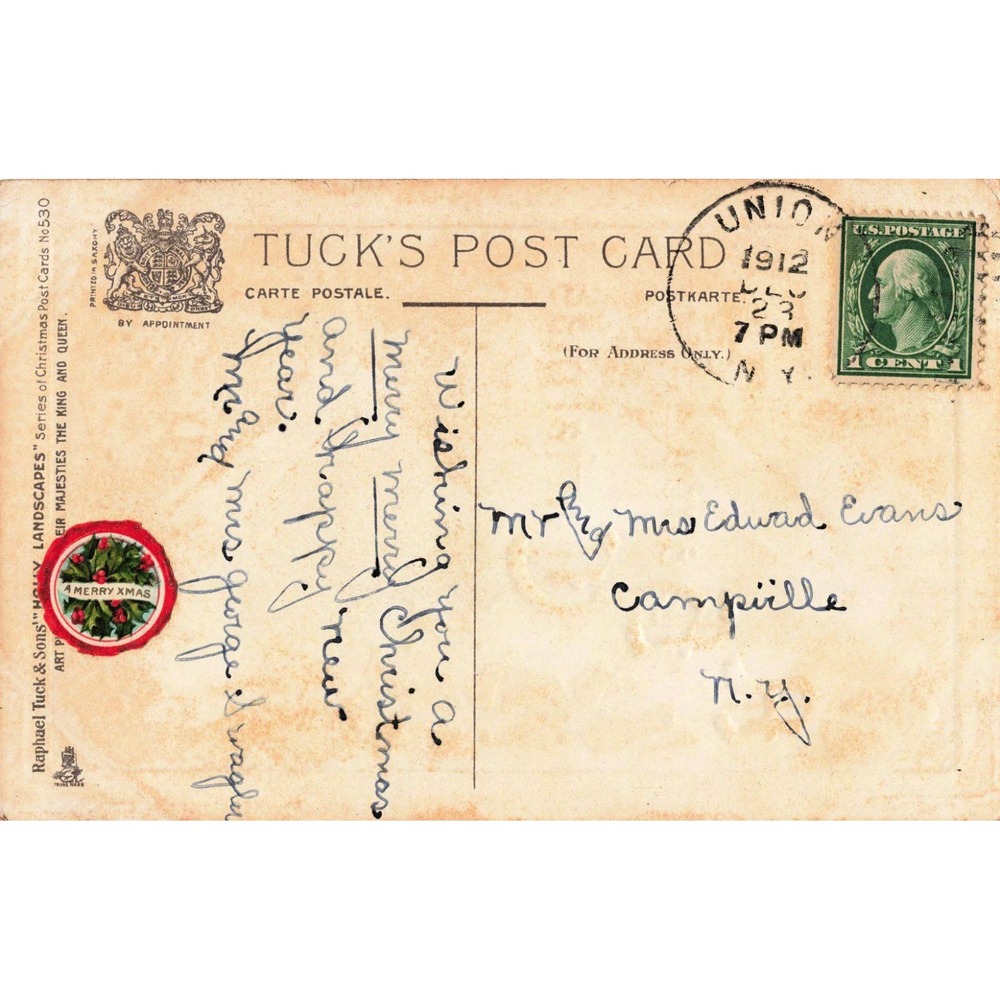 Raphael Tuck & Sons' "HOLLY LANDSCAPES" Series of Christmas Post Cards No 530
ART P EIR MAJESTIES THE KING AND QUEEN.
PRINTED IN SAXONY
BY APPOINTMENT
TRADE MARK
A MERRY XMAS
TUCK'S POST CARD
CARTE POSTALE.
POSTKARTE.
(FOR ADDRESS ONLY.)
UNION
1912
DEC
23
7 PM
N.Y.
U.S. POSTAGE
1 CENT 1
Wishing you a
merry merry Christmas
and Happy new
Year.
Mr and Mrs George
Mr and Mrs Edwad Evans
Campville
N.Y.